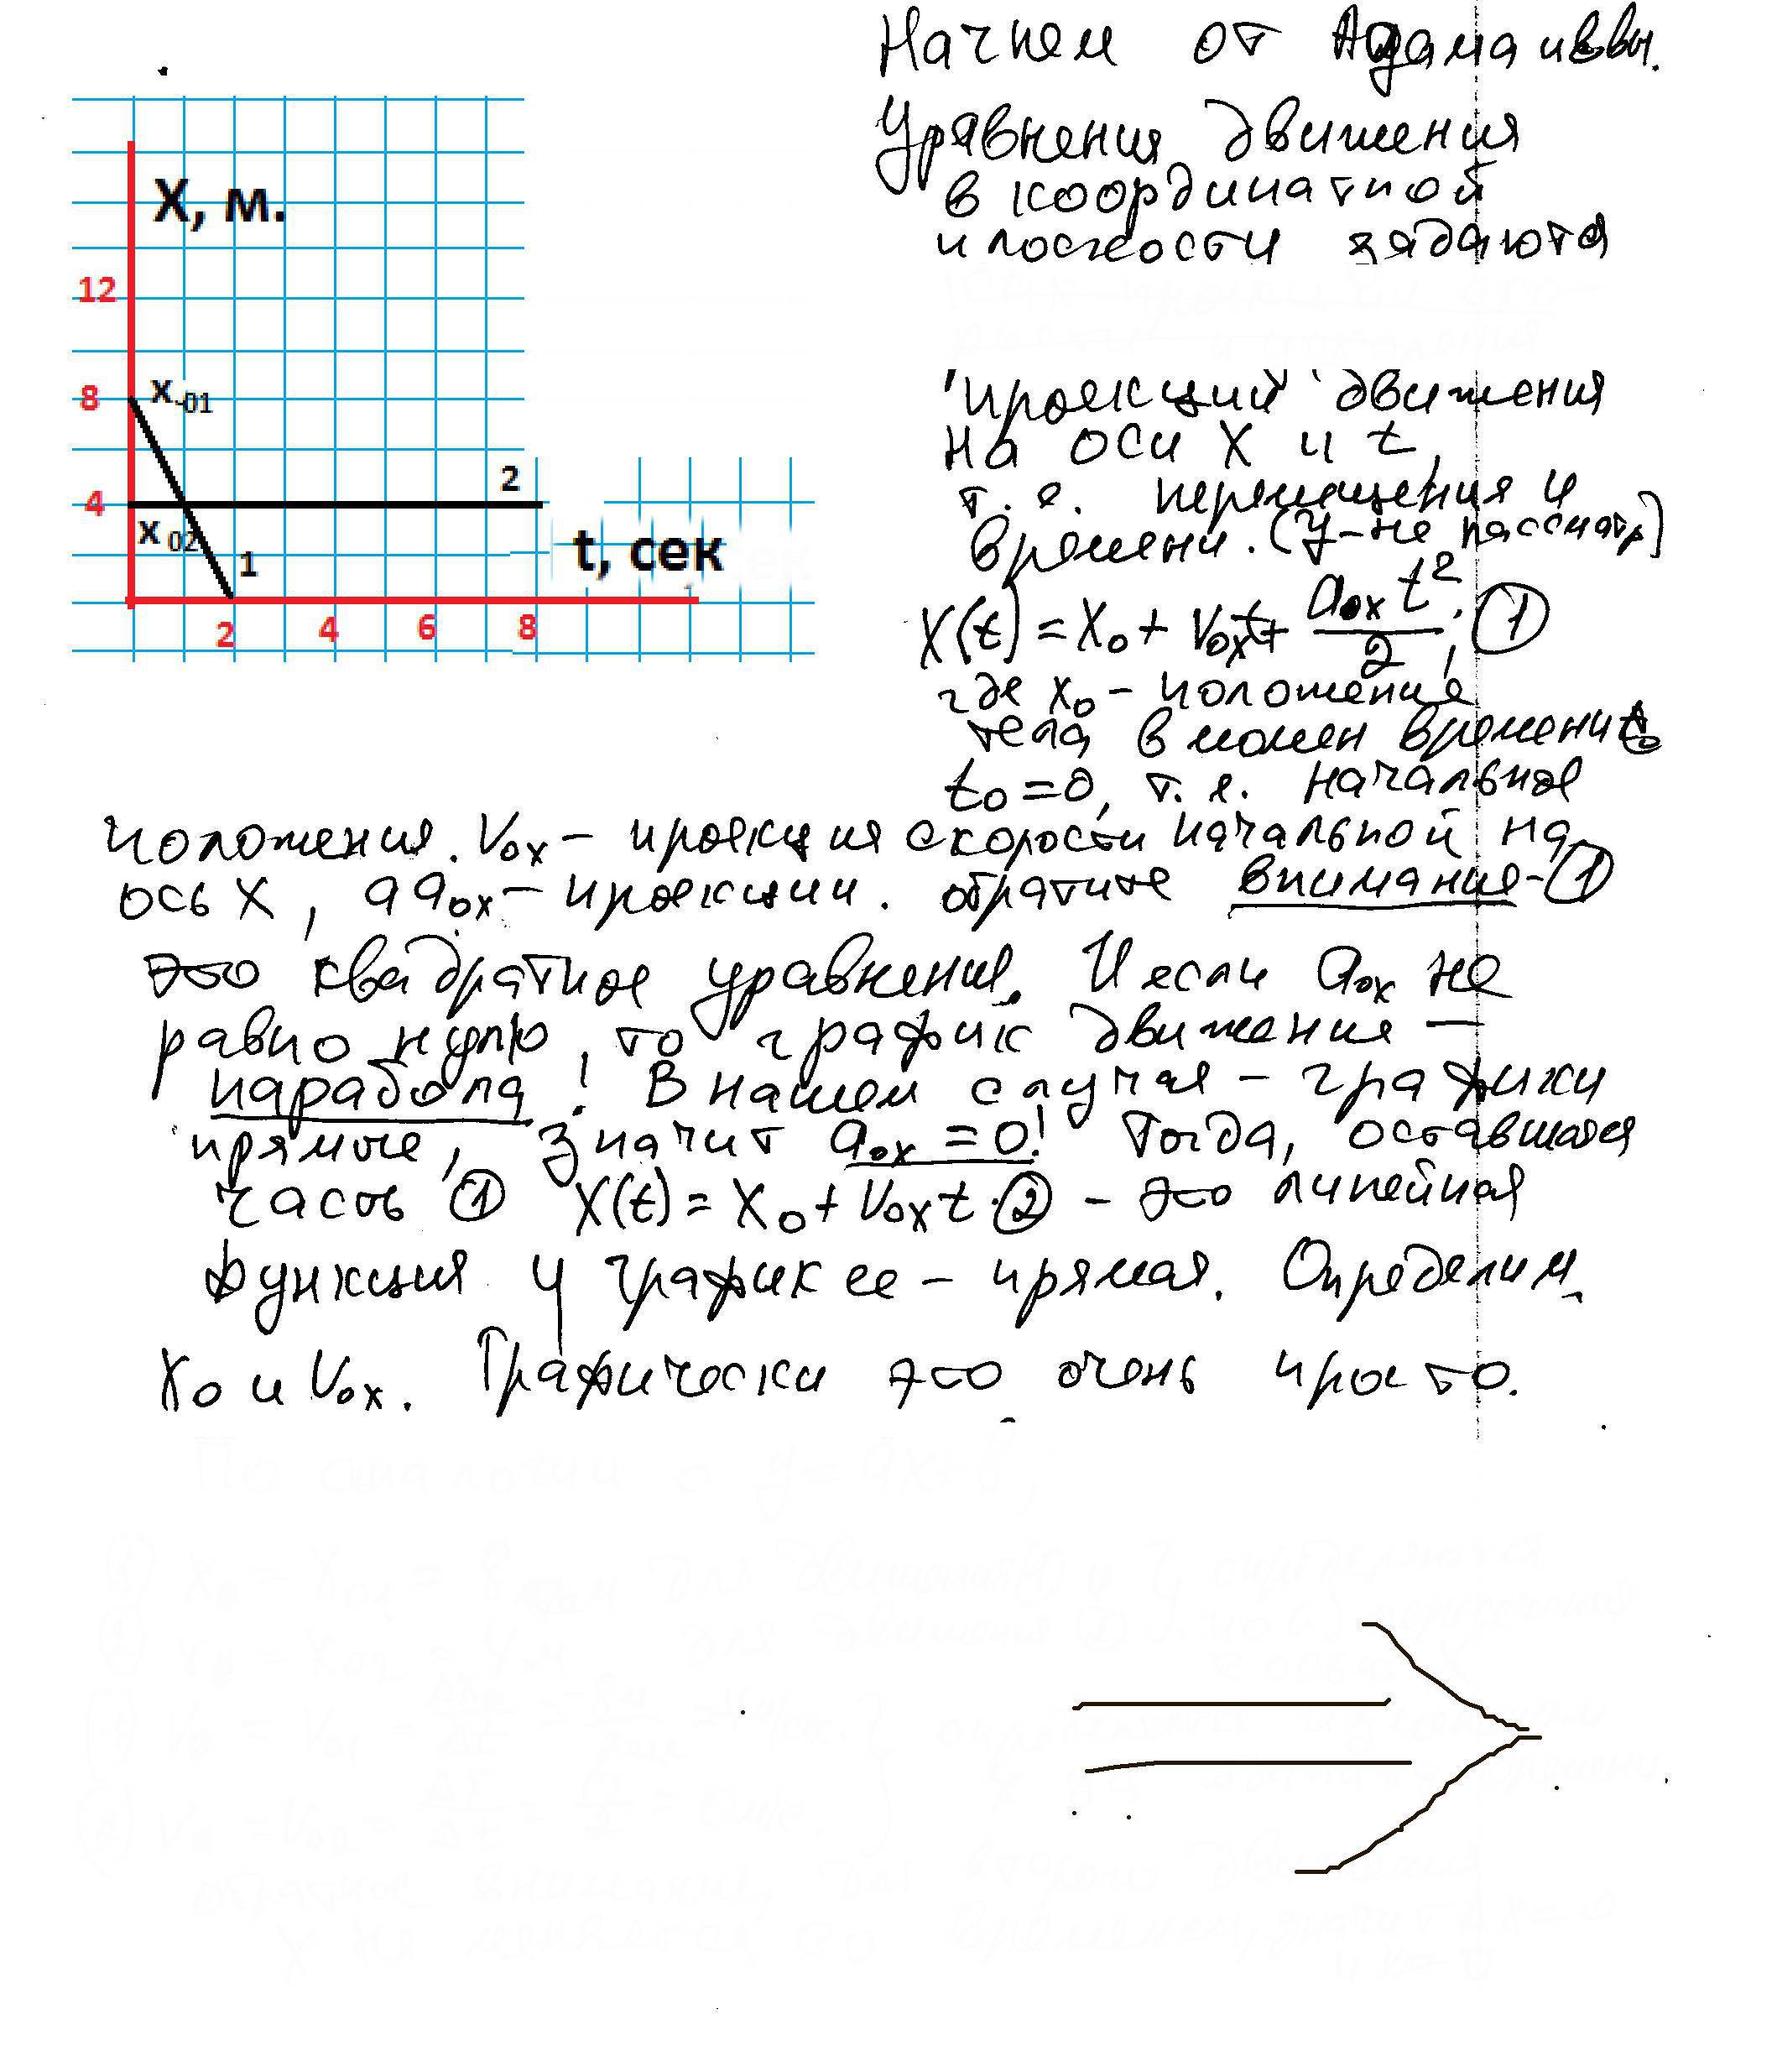 Х, м.
12
8
х-01
4
2
х 02
1
t, сек
2
4
6
8
Начнем от Адама и Евы.
Уравнения движения
в координатной
плоскости задаются
проекций движения
на оси X и t,
т. е. перемещения и
времени. (У-не рассматр)
X(t) = X₀ + V₀ₓt + a₀ₓt²/2; ①
где x₀ - положение
тела в момен времени t₀
t₀ = 0, т. е. начальное
положения. V₀ₓ - проекция скорости начальной на
ось X, а a₀ₓ - проекции. обратите внимание - ①
это квадратное уравнение. И если a₀ₓ не
равно нулю, то график движения —
парабола! В нашем случая - графики
прямые, значит a₀ₓ = 0! Тогда, оставшаяся
часть ① X(t) = X₀ + V₀ₓt ② - это линейная
функция и график ее - прямая. Определим
X₀ и V₀ₓ. Графически это очень просто.